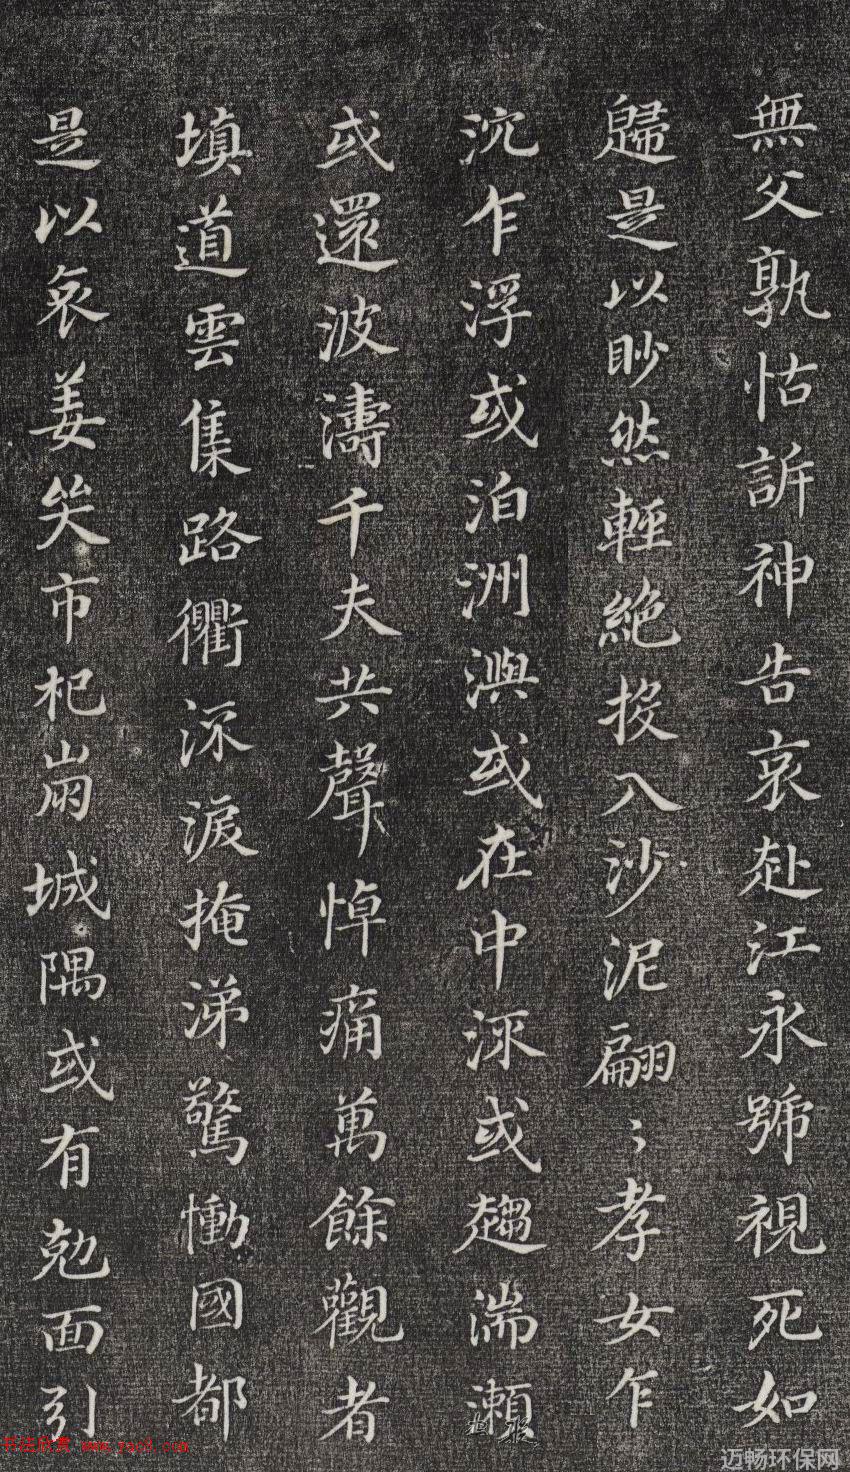 無父孰怙訴神告哀赴江永號視死如
歸是以眇然輕絶投入沙泥翩〻孝女乍
沉乍浮或泊洲嶼或在中流或趨湍瀨
或還波濤千夫共聲悼痛萬餘觀者
填道雲集路衢流淚掩涕驚慟國都
是以哀姜哭市杞崩城隅或有勊面引
书法欣赏 www.yac8.com
迈畅环保网